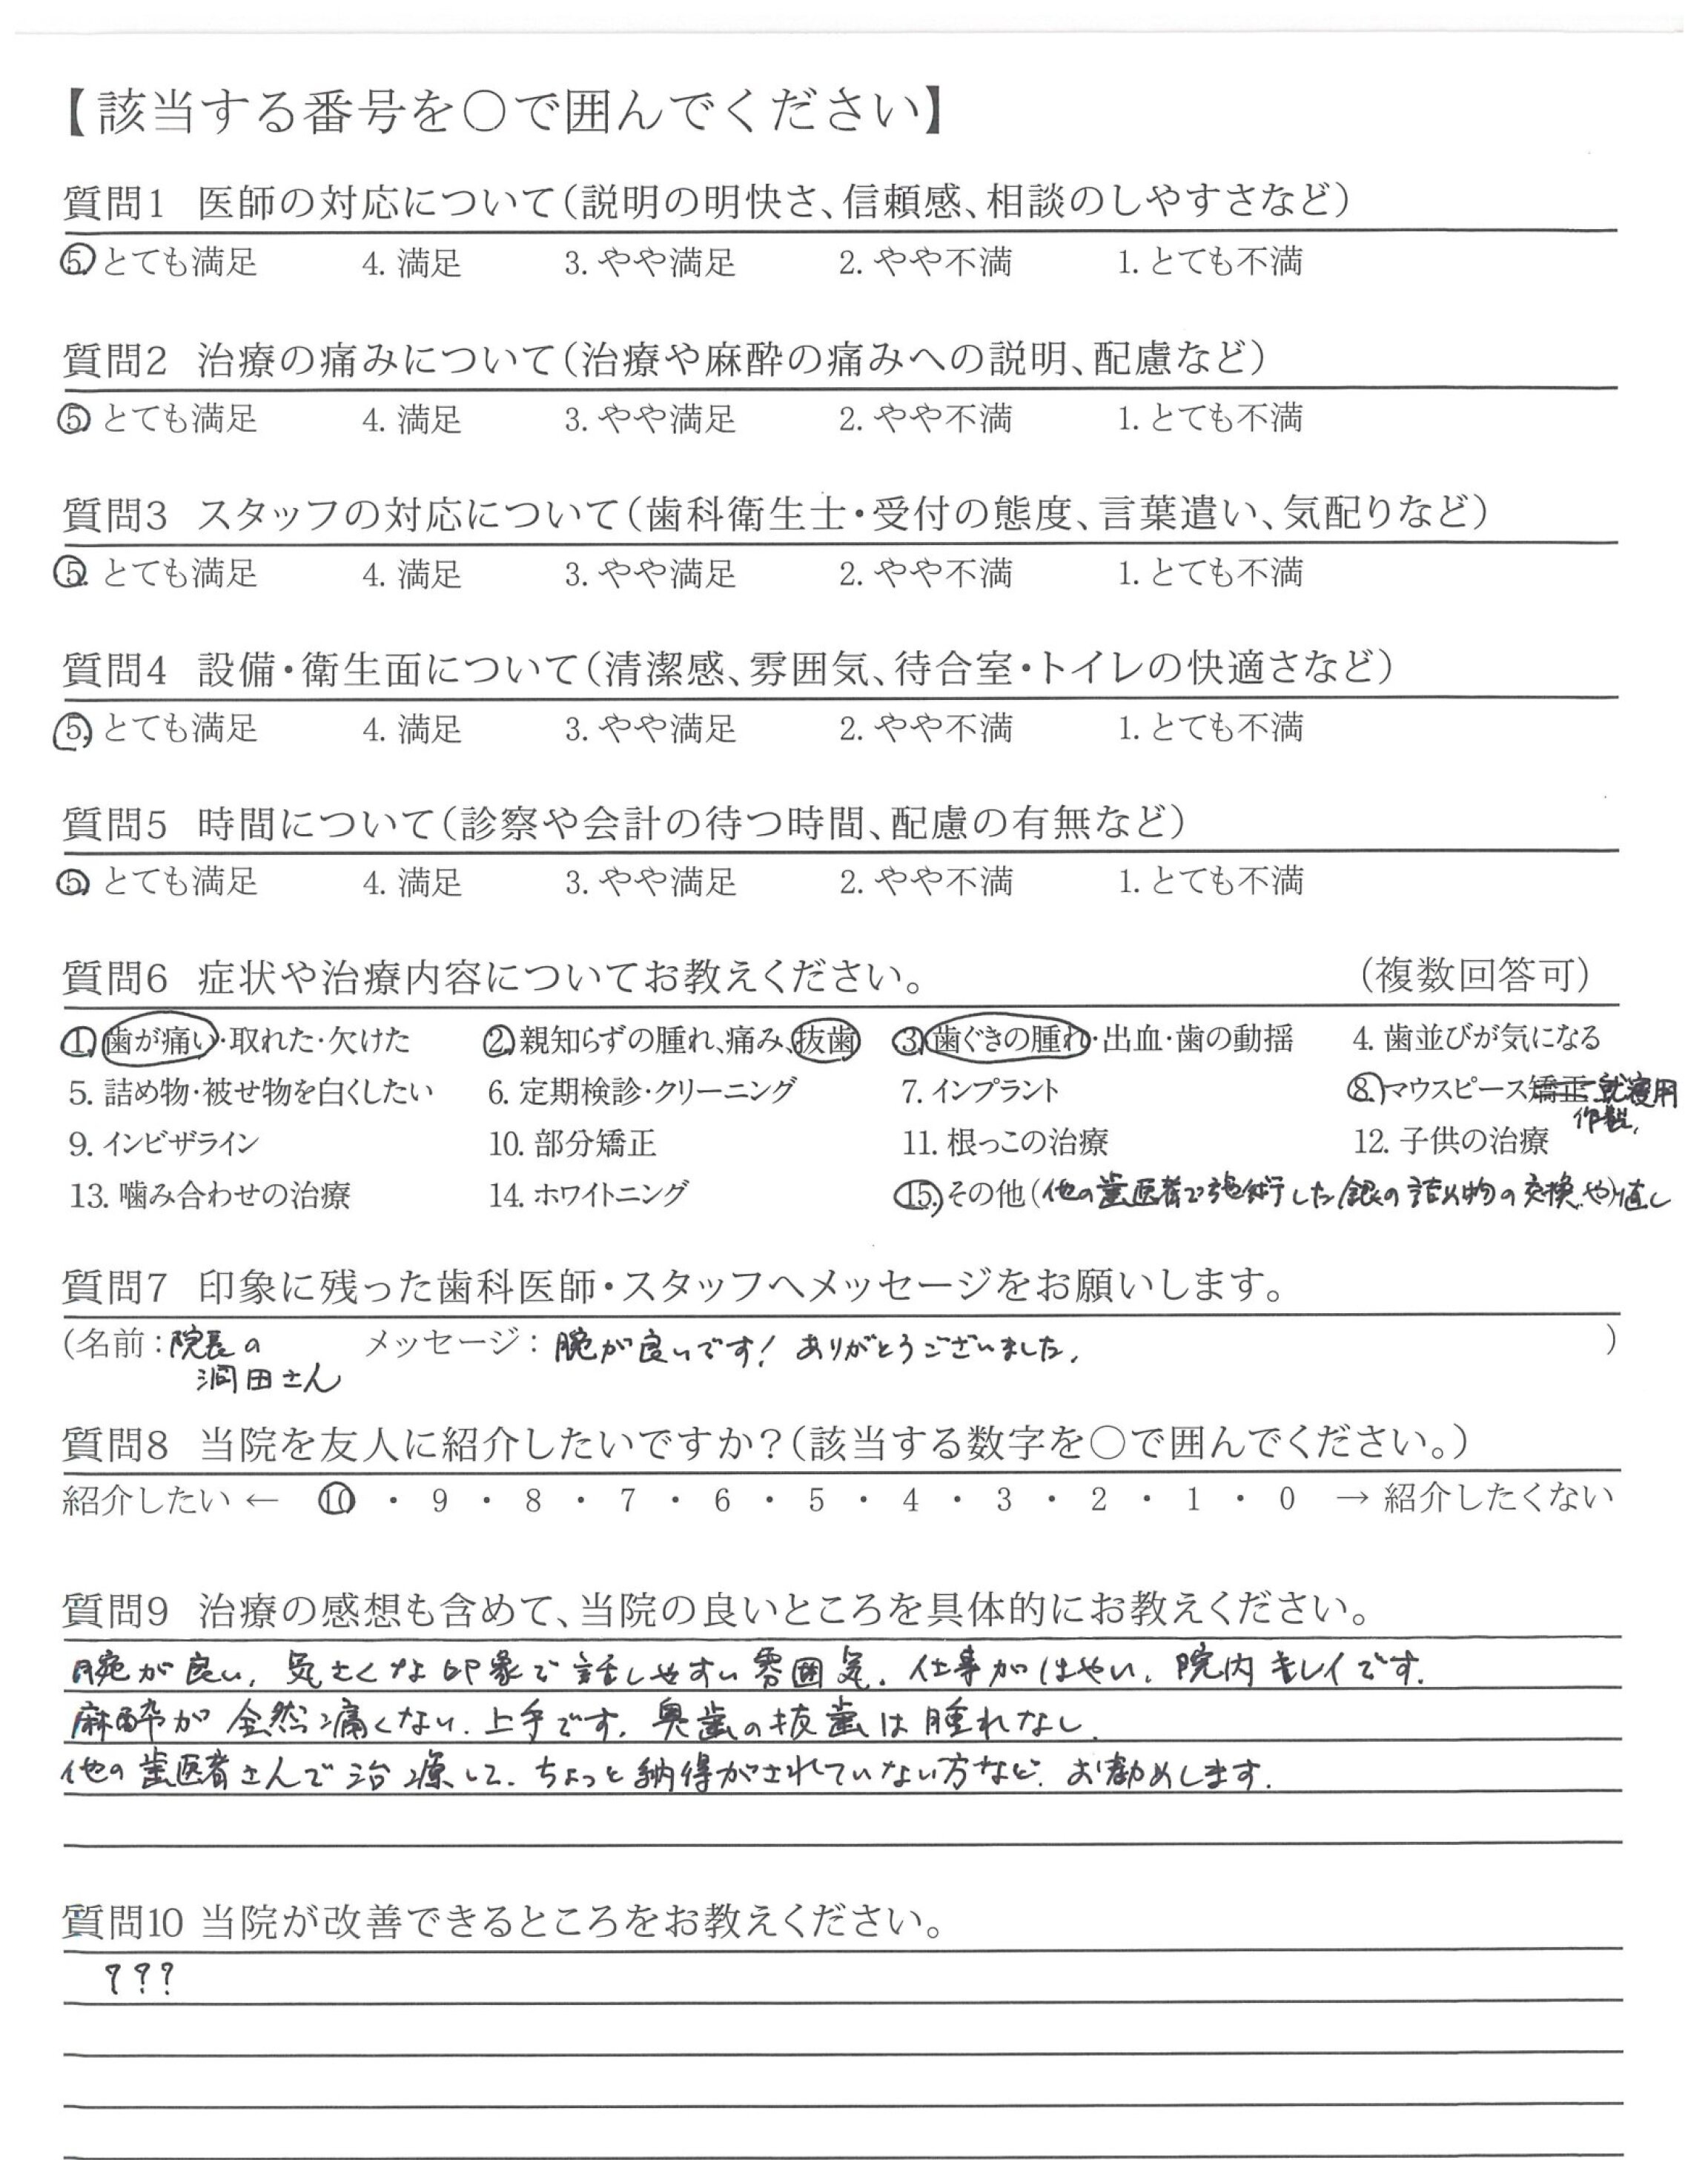 【該当する番号を○で囲んでください】
質問1 医師の対応について(説明の明快さ、信頼感、相談のしやすさなど)
5. とても満足 4. 満足 3. やや満足 2. やや不満 1. とても不満
質問2 治療の痛みについて(治療や麻酔の痛みへの説明、配慮など)
5. とても満足 4. 満足 3. やや満足 2. やや不満 1. とても不満
質問3 スタッフの対応について(歯科衛生士・受付の態度、言葉遣い、気配りなど)
5. とても満足 4. 満足 3. やや満足 2. やや不満 1. とても不満
質問4 設備・衛生面について(清潔感、雰囲気、待合室・トイレの快適さなど)
5. とても満足 4. 満足 3. やや満足 2. やや不満 1. とても不満
質問5 時間について(診察や会計の待つ時間、配慮の有無など)
5. とても満足 4. 満足 3. やや満足 2. やや不満 1. とても不満
質問6 症状や治療内容についてお教えください。 (複数回答可)
1. 歯が痛い・取れた・欠けた 2. 親知らずの腫れ、痛み、抜歯 3. 歯ぐきの腫れ・出血・歯の動揺 4. 歯並びが気になる
5. 詰め物・被せ物を白くしたい 6. 定期検診・クリーニング 7. インプラント 8. マウスピース矯正 就寝用
作製。
9. インビザライン 10. 部分矯正 11. 根っこの治療 12. 子供の治療
13. 噛み合わせの治療 14. ホワイトニング 15. その他(他の歯医者で施術した銀の詰め物の交換や)直し
質問7 印象に残った歯科医師・スタッフへメッセージをお願いします。
(名前:院長の メッセージ: 腕が良いです! ありがとうございました。 )
潤田さん
質問8 当院を友人に紹介したいですか?(該当する数字を○で囲んでください。)
紹介したい ← 10 ・ 9 ・ 8 ・ 7 ・ 6 ・ 5 ・ 4 ・ 3 ・ 2 ・ 1 ・ 0 → 紹介したくない
質問9 治療の感想も含めて、当院の良いところを具体的にお教えください。
腕が良い。気さくな印象で話しやすい雰囲気。仕事がはやい。院内キレイです。
麻酔が全然痛くない。上手です。奥歯の抜歯は腫れなし。
他の歯医者さんで治療して、ちょっと納得がされていない方など、お勧めします。
質問10 当院が改善できるところをお教えください。
???